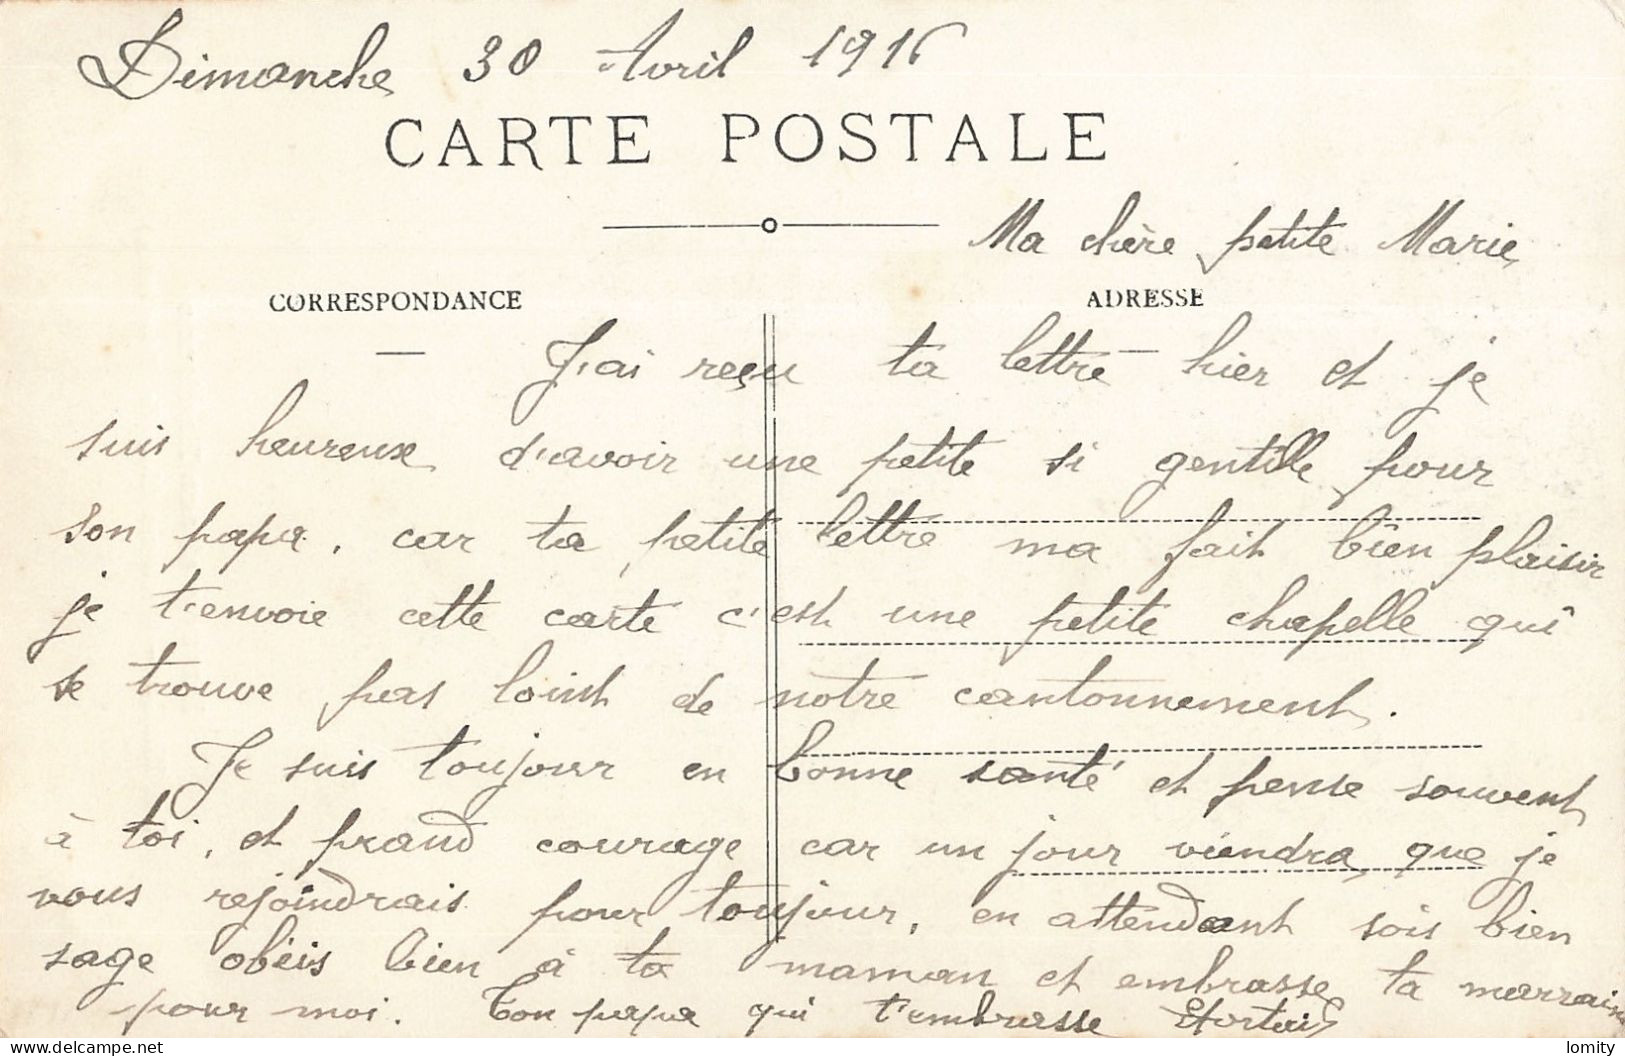 Dimanche 30 Avril 1916
CARTE POSTALE
Ma chère petite Marie
CORRESPONDANCE
ADRESSE
J'ai reçu ta lettre hier et je
suis heureuse d'avoir une petite si gentille pour
son papa, car ta petite lettre ma fait bien plaisir
je t'envoie cette carte c'est une petite chapelle qui
se trouve pas loint de notre cantonnement.
Je suis toujour en bonne santé et pense souvent
à toi, et prand courage car un jour viendra que je
vous rejoindrais pour toujour, en attendant sois bien
sage obéis bien à ta maman et embrasse ta marraine
pour moi. Ton papa qui t'embrasse
delcampe.net
lomity